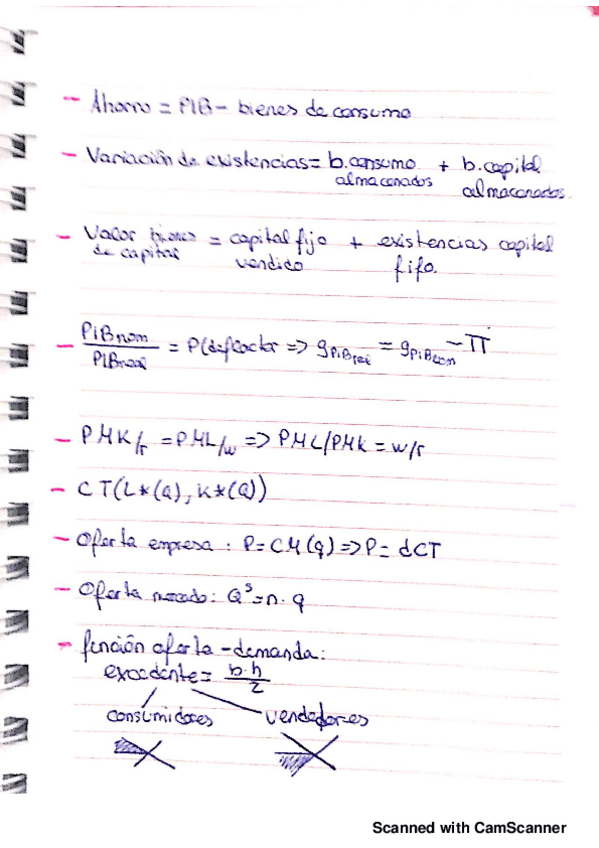 - Ahorro = PIB - bienes de consumo
- Variación de existencias = b.consumo + b.capital
almacenados almacenados
- Valor bienes = capital fijo + existencias capital
de capital vendido fifo.
- PIBnom/PIBreal = P(deflactor => gPIBreal = gPIBnom - π
- PMK/r = PML/w => PML/PMK = w/r
- CT(L*(Q), K*(Q))
- Oferta empresa : P = CM(q) => P = dCT
- Oferta mercado: Qˢ = n · q
- función oferta - demanda:
excedente = b.h/2
consumidores vendedores
Scanned with CamScanner